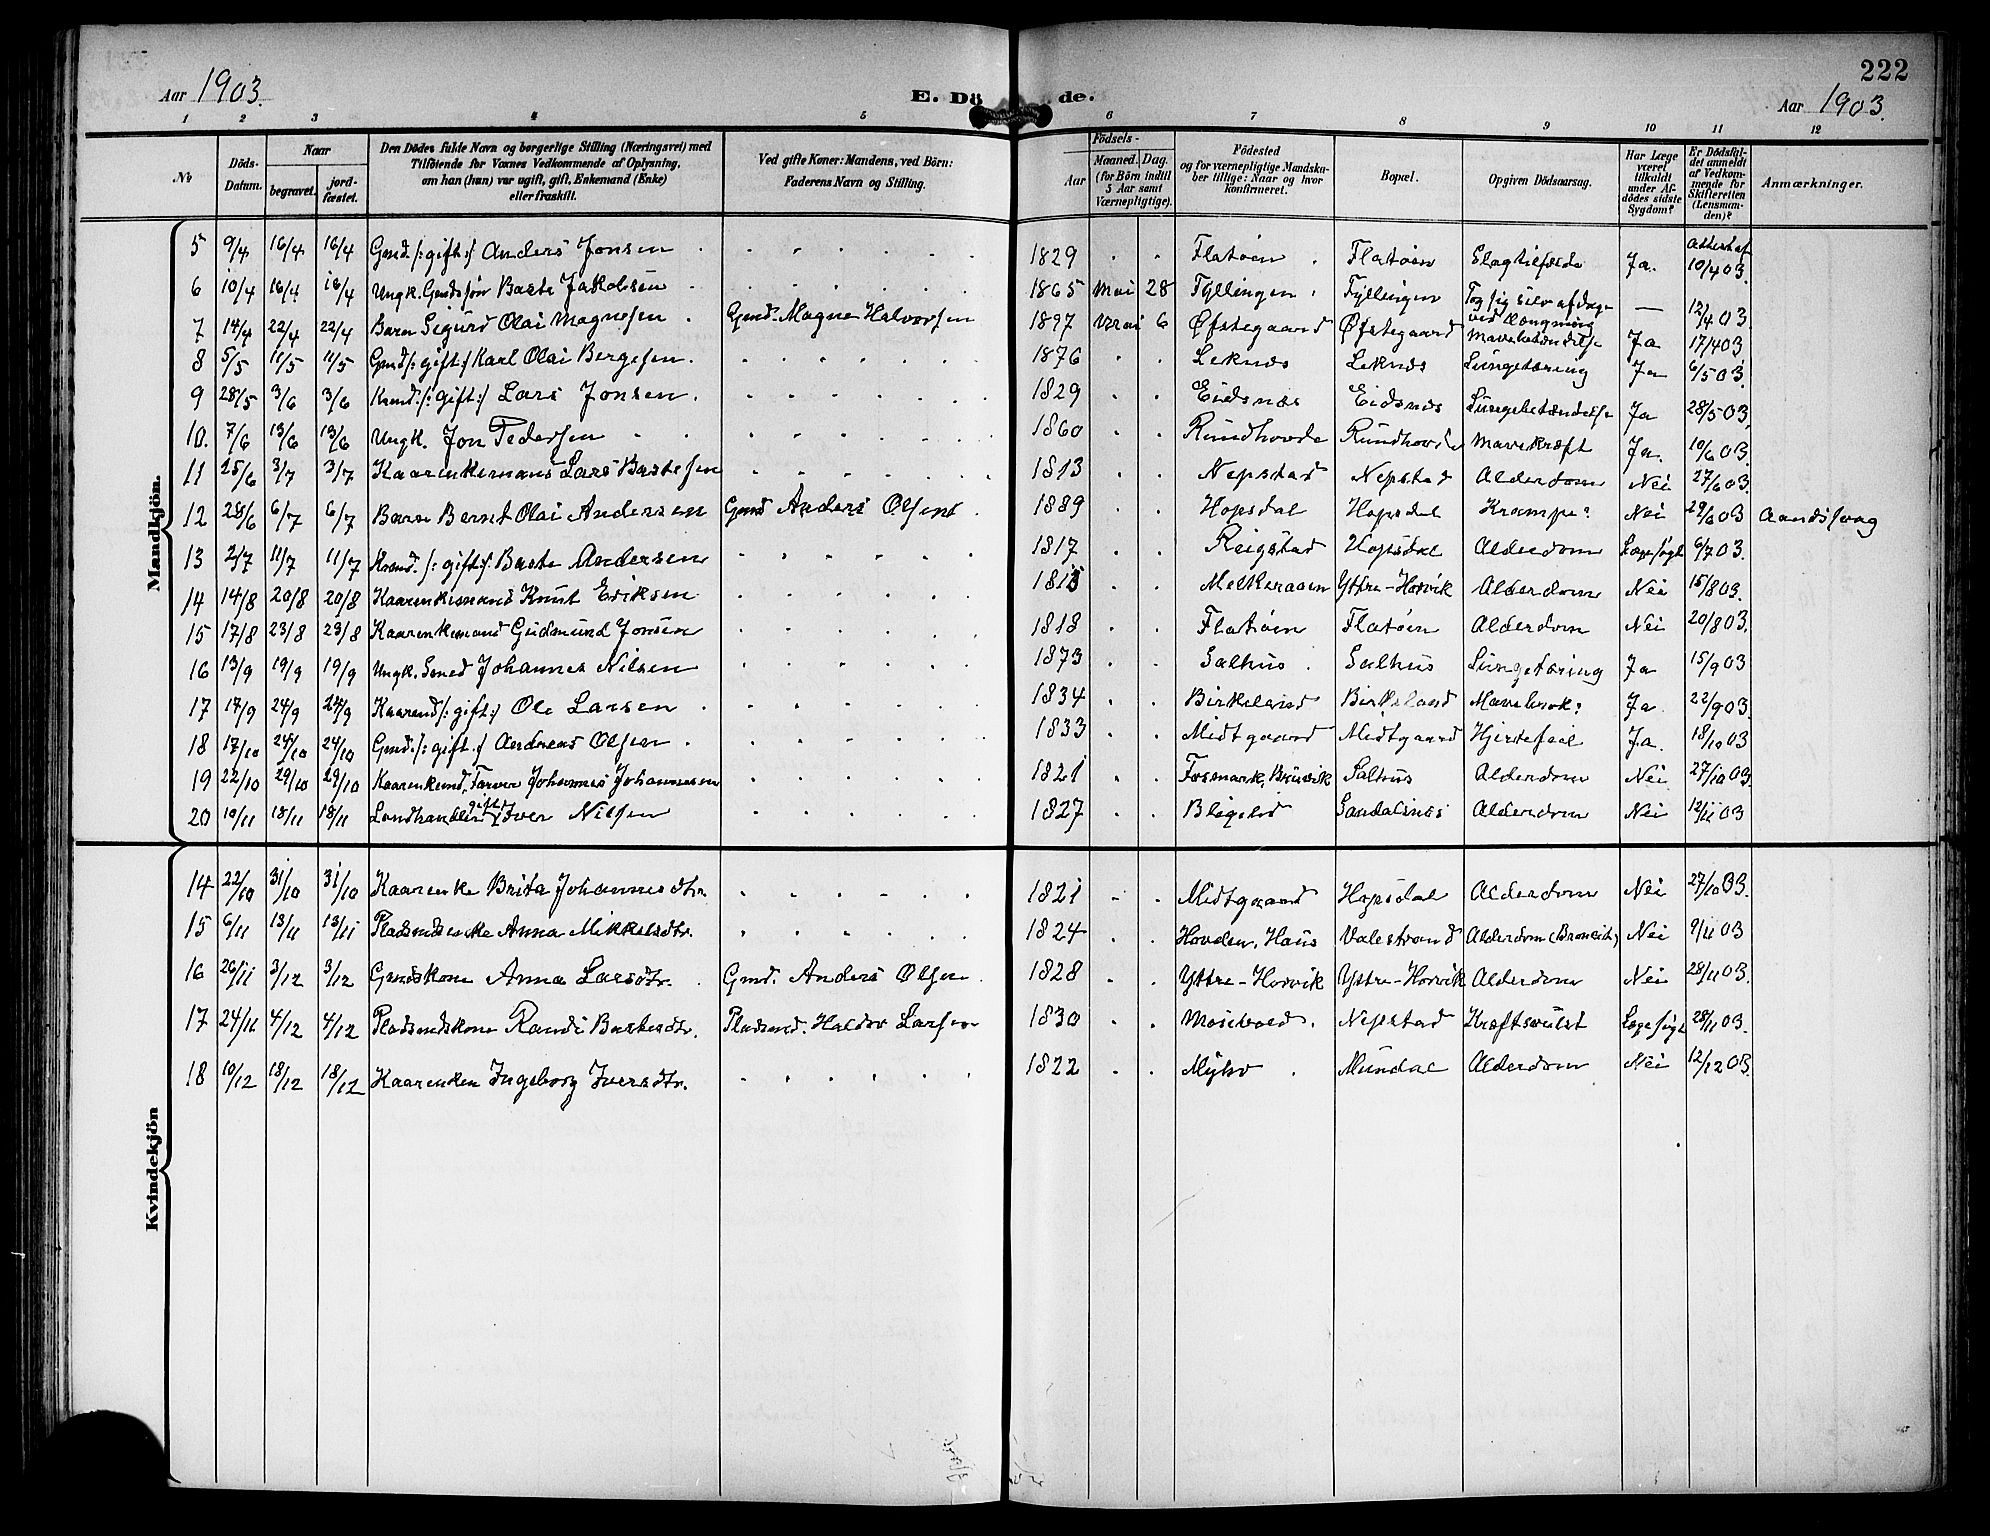 222
Aar 1903.
E. Dö de.
Aar 1903.
1 2 3 4 5 6 7 8 9 10 11 12
No
Döds-Datum.
Naar
begravet.
jord-fæstet.
Den Dödes fulde Navn og borgerlige Stilling (Næringsvei) med
Tilföiende for Voxnes Vedkommende af Oplysning,
om han (hun) var ugift, gift, Enkemand (Enke)
eller fraskilt.
Ved gifte Koner: Mandens, ved Börn:
Faderens Navn og Stilling.
Födsels-
Aar
Maaned. Dag.
(for Börn indtil
5 Aar samt
Værnepligtige).
Födested
og for værnepligtige Mandska-
ber tillige: Naar og hvor
konfirmeret.
Bopæl.
Opgiven Dödsaarsag.
Har Læge
været
tilkaldt
under Af-
dödes sidste
Sygdom?
Er Dödsfal-
det anmeldt
af Vedkom-
mende for
Skifteretten
(Lensman-
den)?
Anmærkninger.
Mandkjön.
5 9/4 16/4 16/4 Gmd /: gift :/ Anders Jonsen 1829 Flatöen Flatöen Slagtilfælde Ja. 10/4 03.
6 10/4 16/4 16/4 Ungk. Gmdssön Baste Jakobsen 1865 Mai 28 Fyllingen Fyllingen Tog sig selv af dage ved Hængning — 12/4 03.
7 14/4 22/4 22/4 Barn Sigurd Olai Magnesen Gmd. Magne Halvorsen 1897 6 Öfstegaard Öfstegaard Mavebetændelse Ja 17/4 03
8 5/5 11/5 11/5 Gmd /: gift :/ Karl Olai Bergesen 1876 Leknes Leknes Lungetæring Ja 6/5 03.
9 28/5 3/6 3/6 /: gift :/ Lars Jonsen 1829 Eidsnes Eidsnes Lungebetændelse Ja 28/5 03.
10. 7/6 13/6 13/6 Ungk. Jon Pedersen 1860 Rundhovde Rundhovde Mavekræft Ja. 10/6 03.
11 25/6 3/7 3/7 Kaarenkemand Lars Bastesen 1813 Nepstad Nepstad Alderdom Nei 27/6 03.
12 28/6 6/7 6/7 Barn Bernt Olai Andersen Gmd Anders Olsen 1889 Hopsdal Hopsdal Krampe Nei 29/6 03 Aandssvag
13 2/7 11/7 11/7 /: gift :/ Baste Andersen 1817 Reigstad Hopsdal Alderdom Læge sögt 6/7 03.
14 14/8 20/8 20/8 Kaarenkemand Knut Eriksen Melkeraaen Yttre-Horvik Alderdom Nei 15/8 03.
15 17/8 23/8 23/8 Kaarenkemand Gudmund Jonsen 1818 Flatöen Flatöen Alderdom Nei 20/8 03.
16 13/9 19/9 19/9 Ungk. Smed Johannes Nilsen 1873 Salhus Salhus Lungetæring Ja 15/9 03
17 17/9 24/9 24/9 Kaarmd /: gift :/ Ole Larsen 1834 Birkeland Birkeland Mavebrok Ja 22/9 03.
18 17/10 24/10 24/10 Gmd. /: gift :/ Andreas Olsen 1833 Midtgaard Midtgaard Hjertefeil Ja. 18/10 03
19 22/10 29/10 29/10 Kaarenkemd, Farver Johannes Johannesen 1821 Fosmark, Bruvik Salhus Alderdom Nei 27/10 03.
20 10/11 18/11 18/11 Landhandler gift Iver Nilsen 1827 Bliglid Sandalsnes Alderdom Nei 12/11 03
Kvindekjön
14 22/10 31/10 31/10 Kaarenke Brita Johannesdtr. 1821 Midtgaard Hopsdal Alderdom Nei 27/10 03.
15 6/11 13/11 13/11 Pladsmdsenke Anna Mikkelsdtr. 1824 Hovden, Haus Valestrand Alderdom (Bronkit) Nei 9/11 03
16 26/11 3/12 3/12 Gmdskone Anna Larsdtr. Gmd. Anders Olsen 1828 Yttre-Horvik Yttre-Horvik Alderdom Nei 28/11 03
17 24/11 4/12 4/12 Pladsmdskone Randi Bastesdtr. Pladsmd. Haldor Larsen 1830 Mosevold Nepstad Kræftsvulst Læge sögt 28/11 03.
18 10/12 18/12 18/12 Kaarenken Ingeborg Iversdtr. 1822 Myhr Mundal Alderdom Nei 12/12 03.